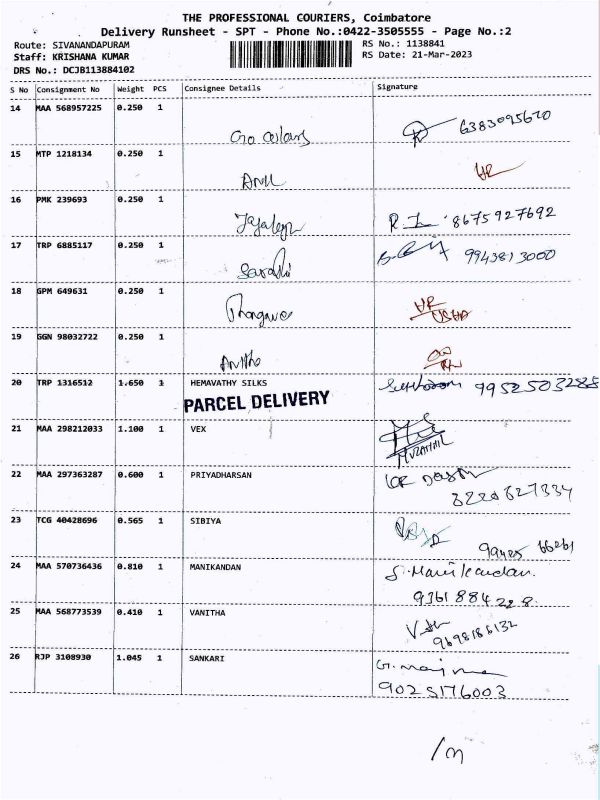 THE PROFESSIONAL COURIERS, Coimbatore
Delivery Runsheet - SPT - Phone No.:0422-3505555 - Page No.:2
Route: SIVANANDAPURAM
RS No.: 1138841
Staff: KRISHANA KUMAR
RS Date: 21-Mar-2023
DRS No.: DCJB113884102
S No Consignment No Weight PCS Consignee Details Signature
14 MAA 568957225 0.250 1
6383095670
15 MTP 1218134 0.250 1
16 PMK 239693 0.250 1
8675927692
17 TRP 6885117 0.250 1
9943813000
18 GPM 649631 0.250 1
19 GGN 98032722 0.250 1
20 TRP 1316512 1.650 1 HEMAVATHY SILKS
PARCEL DELIVERY
21 MAA 298212033 1.100 1 VEX
22 MAA 297363287 0.600 1 PRIYADHARSAN
23 TCG 40428696 0.565 1 SIBIYA
24 MAA 570736436 0.810 1 MANIKANDAN
S. Manikandan.
9361884228
25 MAA 568773539 0.410 1 VANITHA
9698186132
26 RJP 3108930 1.045 1 SANKARI
9025176003